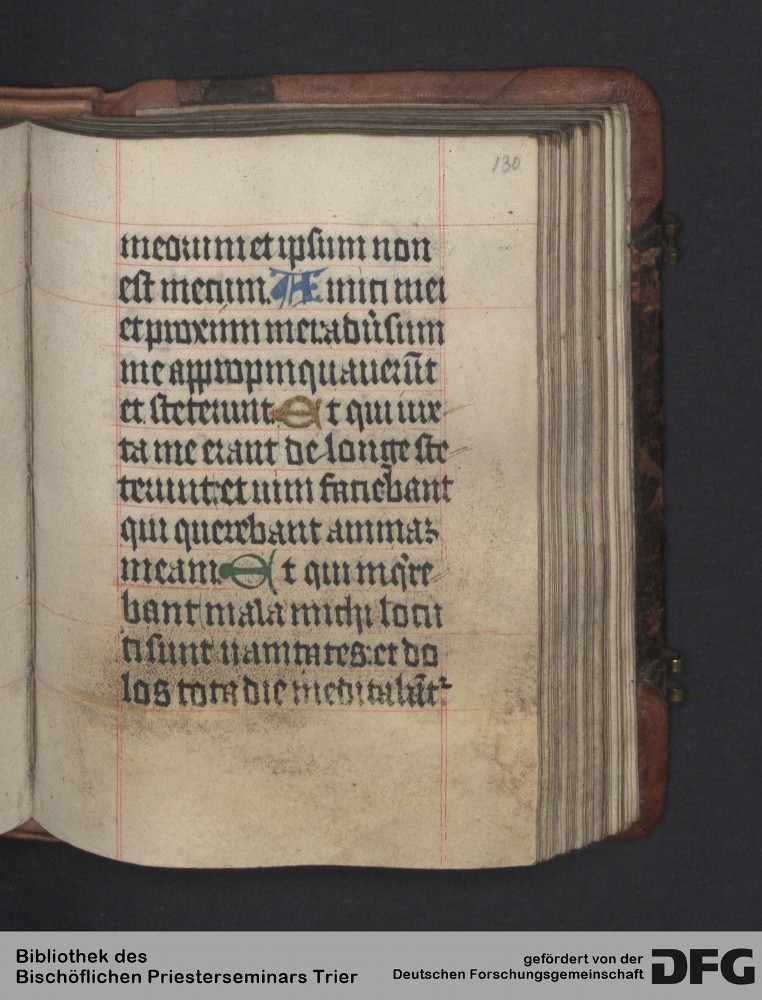 130
meorum et ipsum non
est mecum. Amici mei
et proximi mei adūsum
me appropinquauerūt
et steterunt. Et qui iux
ta me erant de longe ste
terunt: et uim faciebant
qui querebant animaʒ
meam. Et qui inqͥre
bant mala michi locu
ti sunt uanitates: et do
los tota die meditabāt᷑
Bibliothek des
Bischöflichen Priesterseminars Trier
gefördert von der
Deutschen Forschungsgemeinschaft
DFG